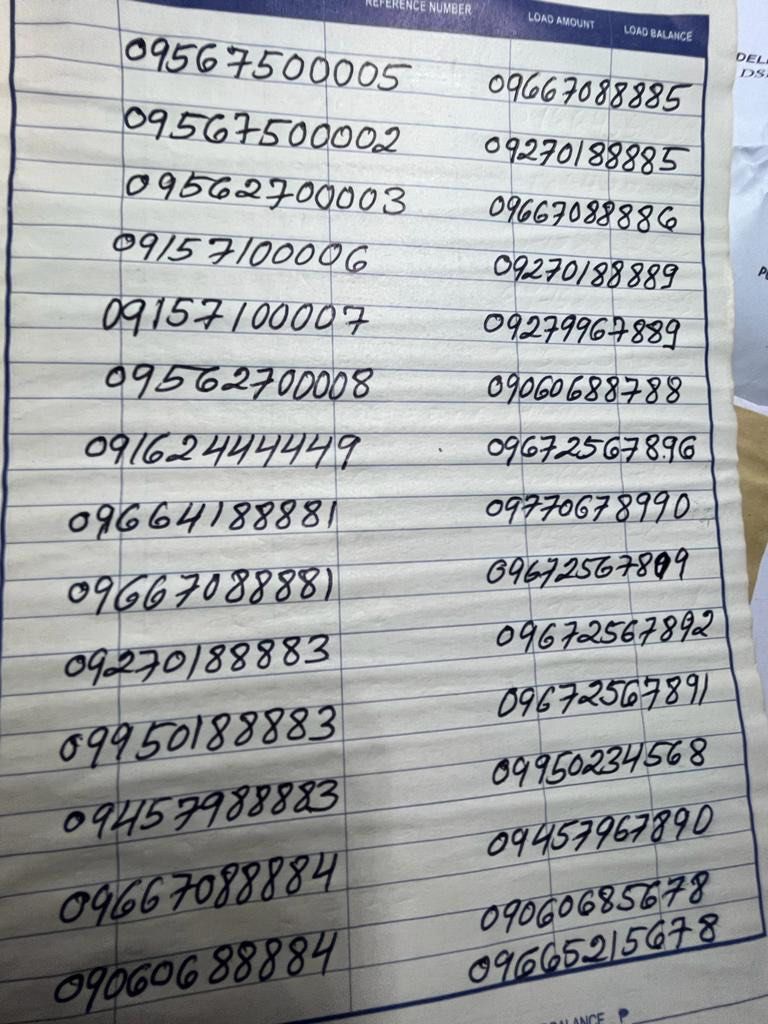 REFERENCE NUMBER LOAD AMOUNT LOAD BALANCE
09567500005 09667088885
09567500002 09270188885
09562700003 09667088886
09157100006 09270188889
09157100007 09279967889
09562700008 09060688788
09162444449 09672567896
09664188881 09770678990
09667088881 09672567899
09270188883 09672567892
09950188883 09672567891
09457988883 09950234568
09667088884 09457967890
09060688884 09060685678
09665215678
BALANCE P